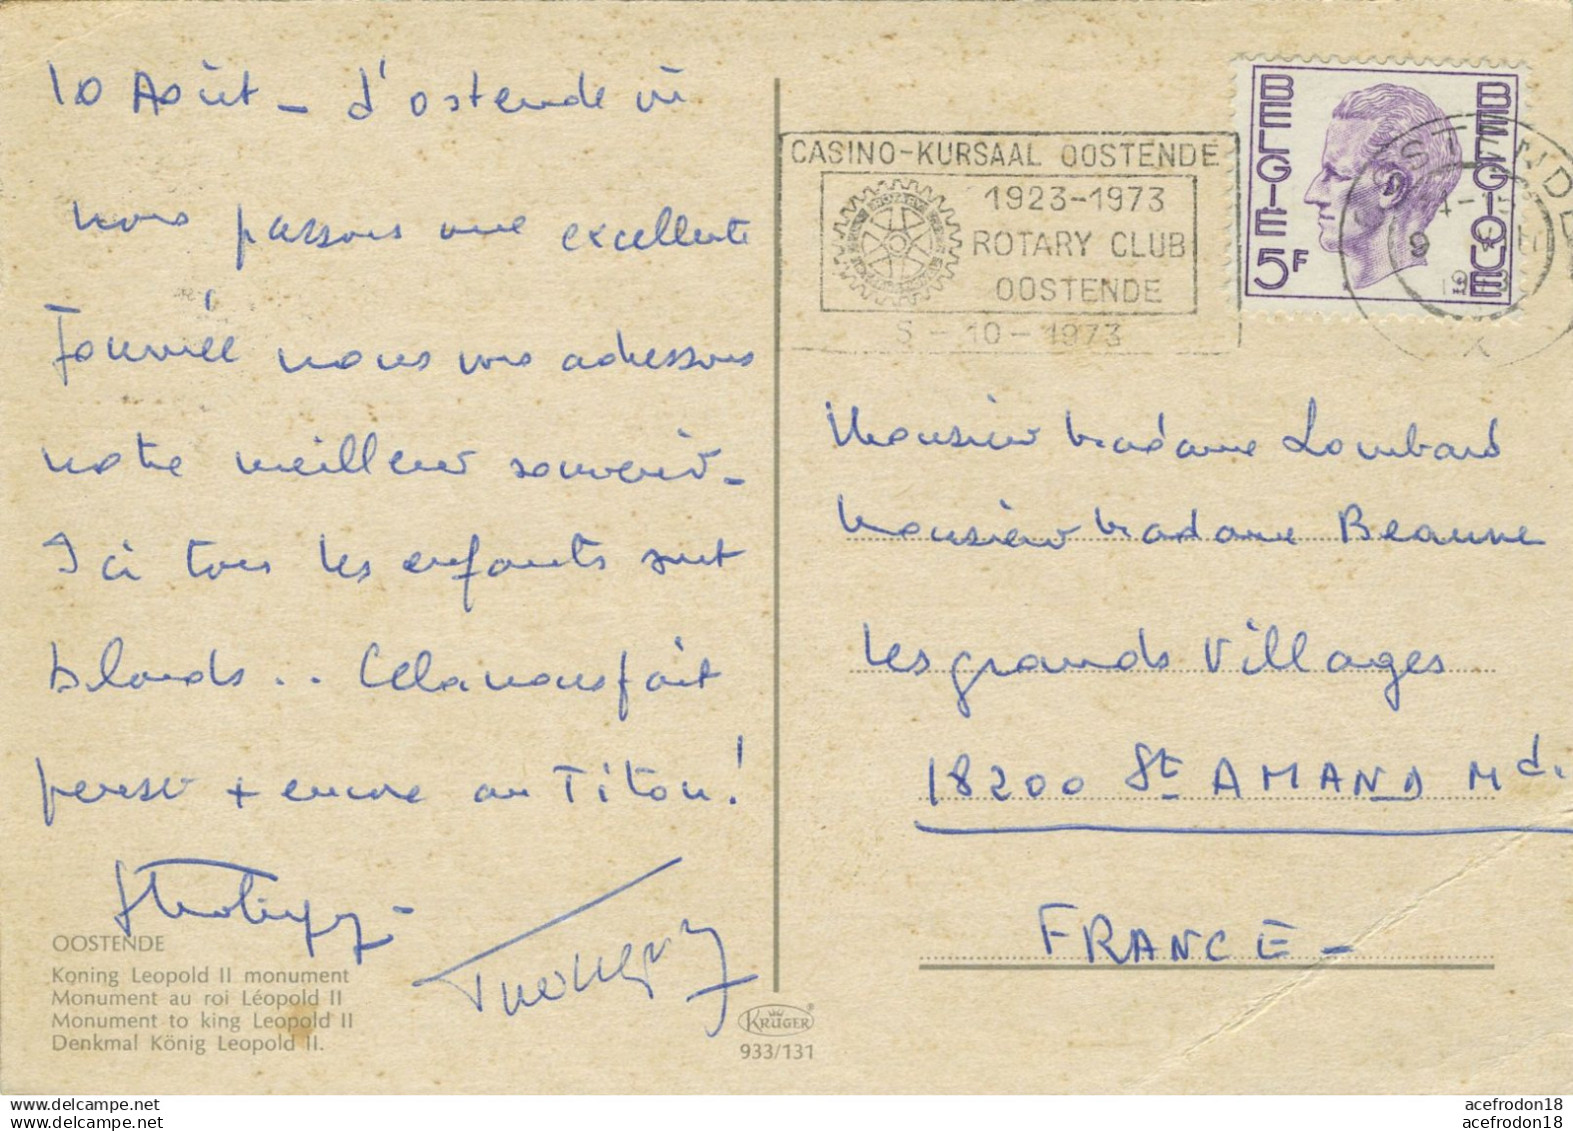 10 Août - d'ostende où
nous passons une excellente
journée nous vous adressons
notre meilleur souvenir -
Ici tous les enfants sont
blonds.. Cela nous fait
penser + encore au Titou!
OOSTENDE
Koning Leopold II monument
Monument au roi Léopold II
Monument to king Leopold II
Denkmal König Leopold II.
KRÜGER
933/131
CASINO-KURSAAL OOSTENDE
1923-1973
ROTARY CLUB
OOSTENDE
5-10-1973
BELGIE 5F
BELGIQUE
OOSTENDE
Monsieur Madame Lombard
Monsieur Madame Beaune
Les grands Villages
18200 St AMAND Md.
FRANCE -
www.delcampe.net
www.delcampe.net
acefrodon18
acefrodon18